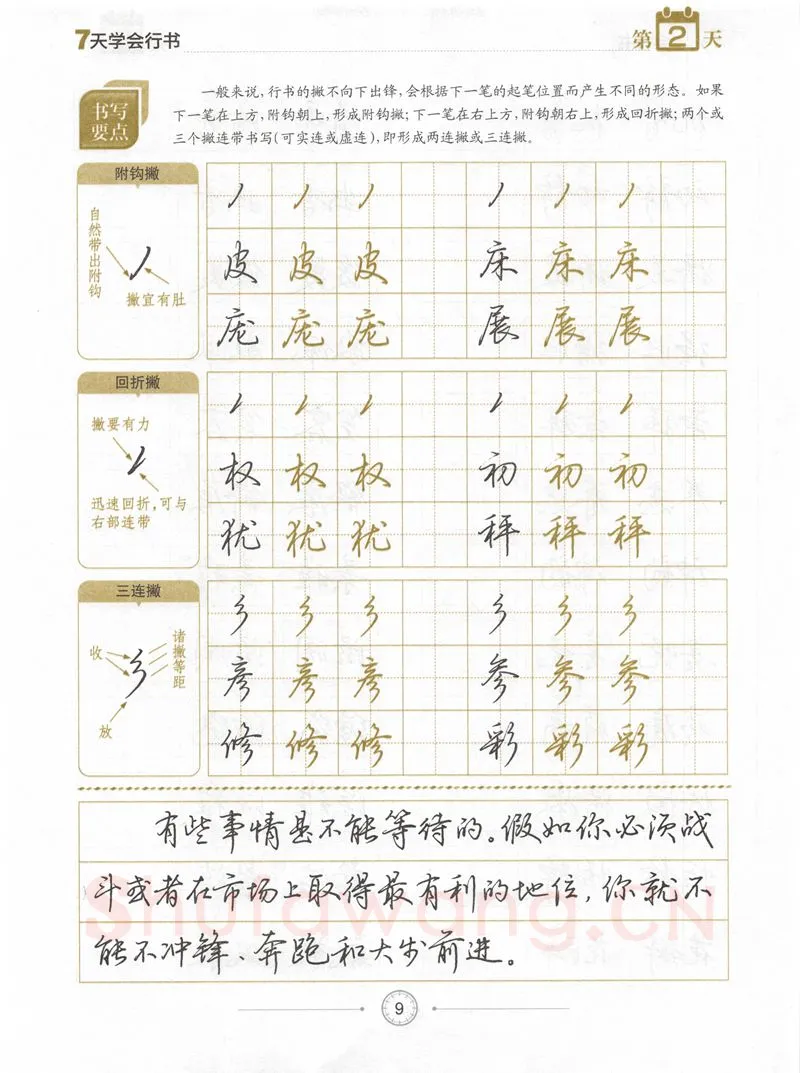 7天学会行书
第2天
书写
要点
一般来说,行书的撇不向下出锋,会根据下一笔的起笔位置而产生不同的形态。如果
下一笔在上方,附钩朝上,形成附钩撇;下一笔在右上方,附钩朝右上,形成回折撇;两个或
三个撇连带书写(可实连或虚连),即形成两连撇或三连撇。
附钩撇
自然带出附钩
撇宜有肚
丿 丿 丿 丿 丿 丿
皮 皮 皮 床 床 床
庞 庞 庞 展 展 展
回折撇
撇要有力
迅速回折,可与
右部连带
丿 丿 丿 丿 丿 丿
权 权 权 初 初 初
犹 犹 犹 秤 秤 秤
三连撇
收
诸撇等距
放
彡 彡 彡 彡 彡 彡
彦 彦 彦 参 参 参
修 修 修 彩 彩 彩
有些事情是不能等待的。假如你必须战
斗或者在市场上取得最有利的地位,你就不
能不冲锋、奔跑和大步前进。
Shufawang.CN
9